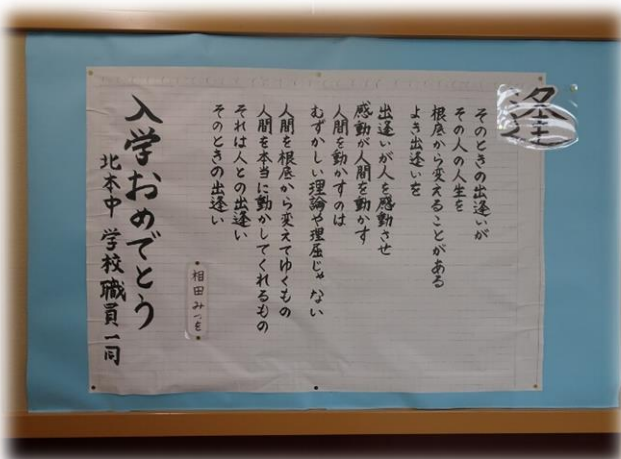 逢
そのときの出逢いが
その人の人生を
根底から変えることがある
よき出逢いを
出逢いが人を感動させ
感動が人間を動かす
人間を動かすのは
むずかしい理論や理屈じゃない
人間を根底から変えてゆくもの
人間を本当に動かしてくれるもの
それは人との出逢い
そのときの出逢い
相田みつを
入学おめでとう
北本中 学校職員一同